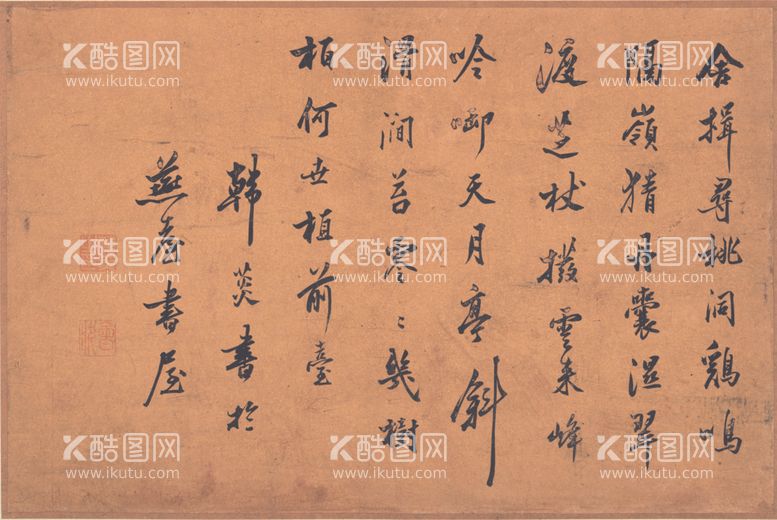 舍揖尋桃洞鷄鳴
隔嶺猜丹囊濕翠
渡芝杖撥雲来峰
吟啣天月亭斜
得澗苔零々幾樹
柏何世植前臺
韓菼書於
燕臺書屋
酷图网
www.ikutu.com
酷图网
www.ikutu.com
酷图网
www.ikutu.com
酷图网
www.ikutu.com
酷图网
www.ikutu.com
酷图网
www.ikutu.com
酷图网
www.ikutu.com
酷图网
www.ikutu.com
酷图网
www.ikutu.com